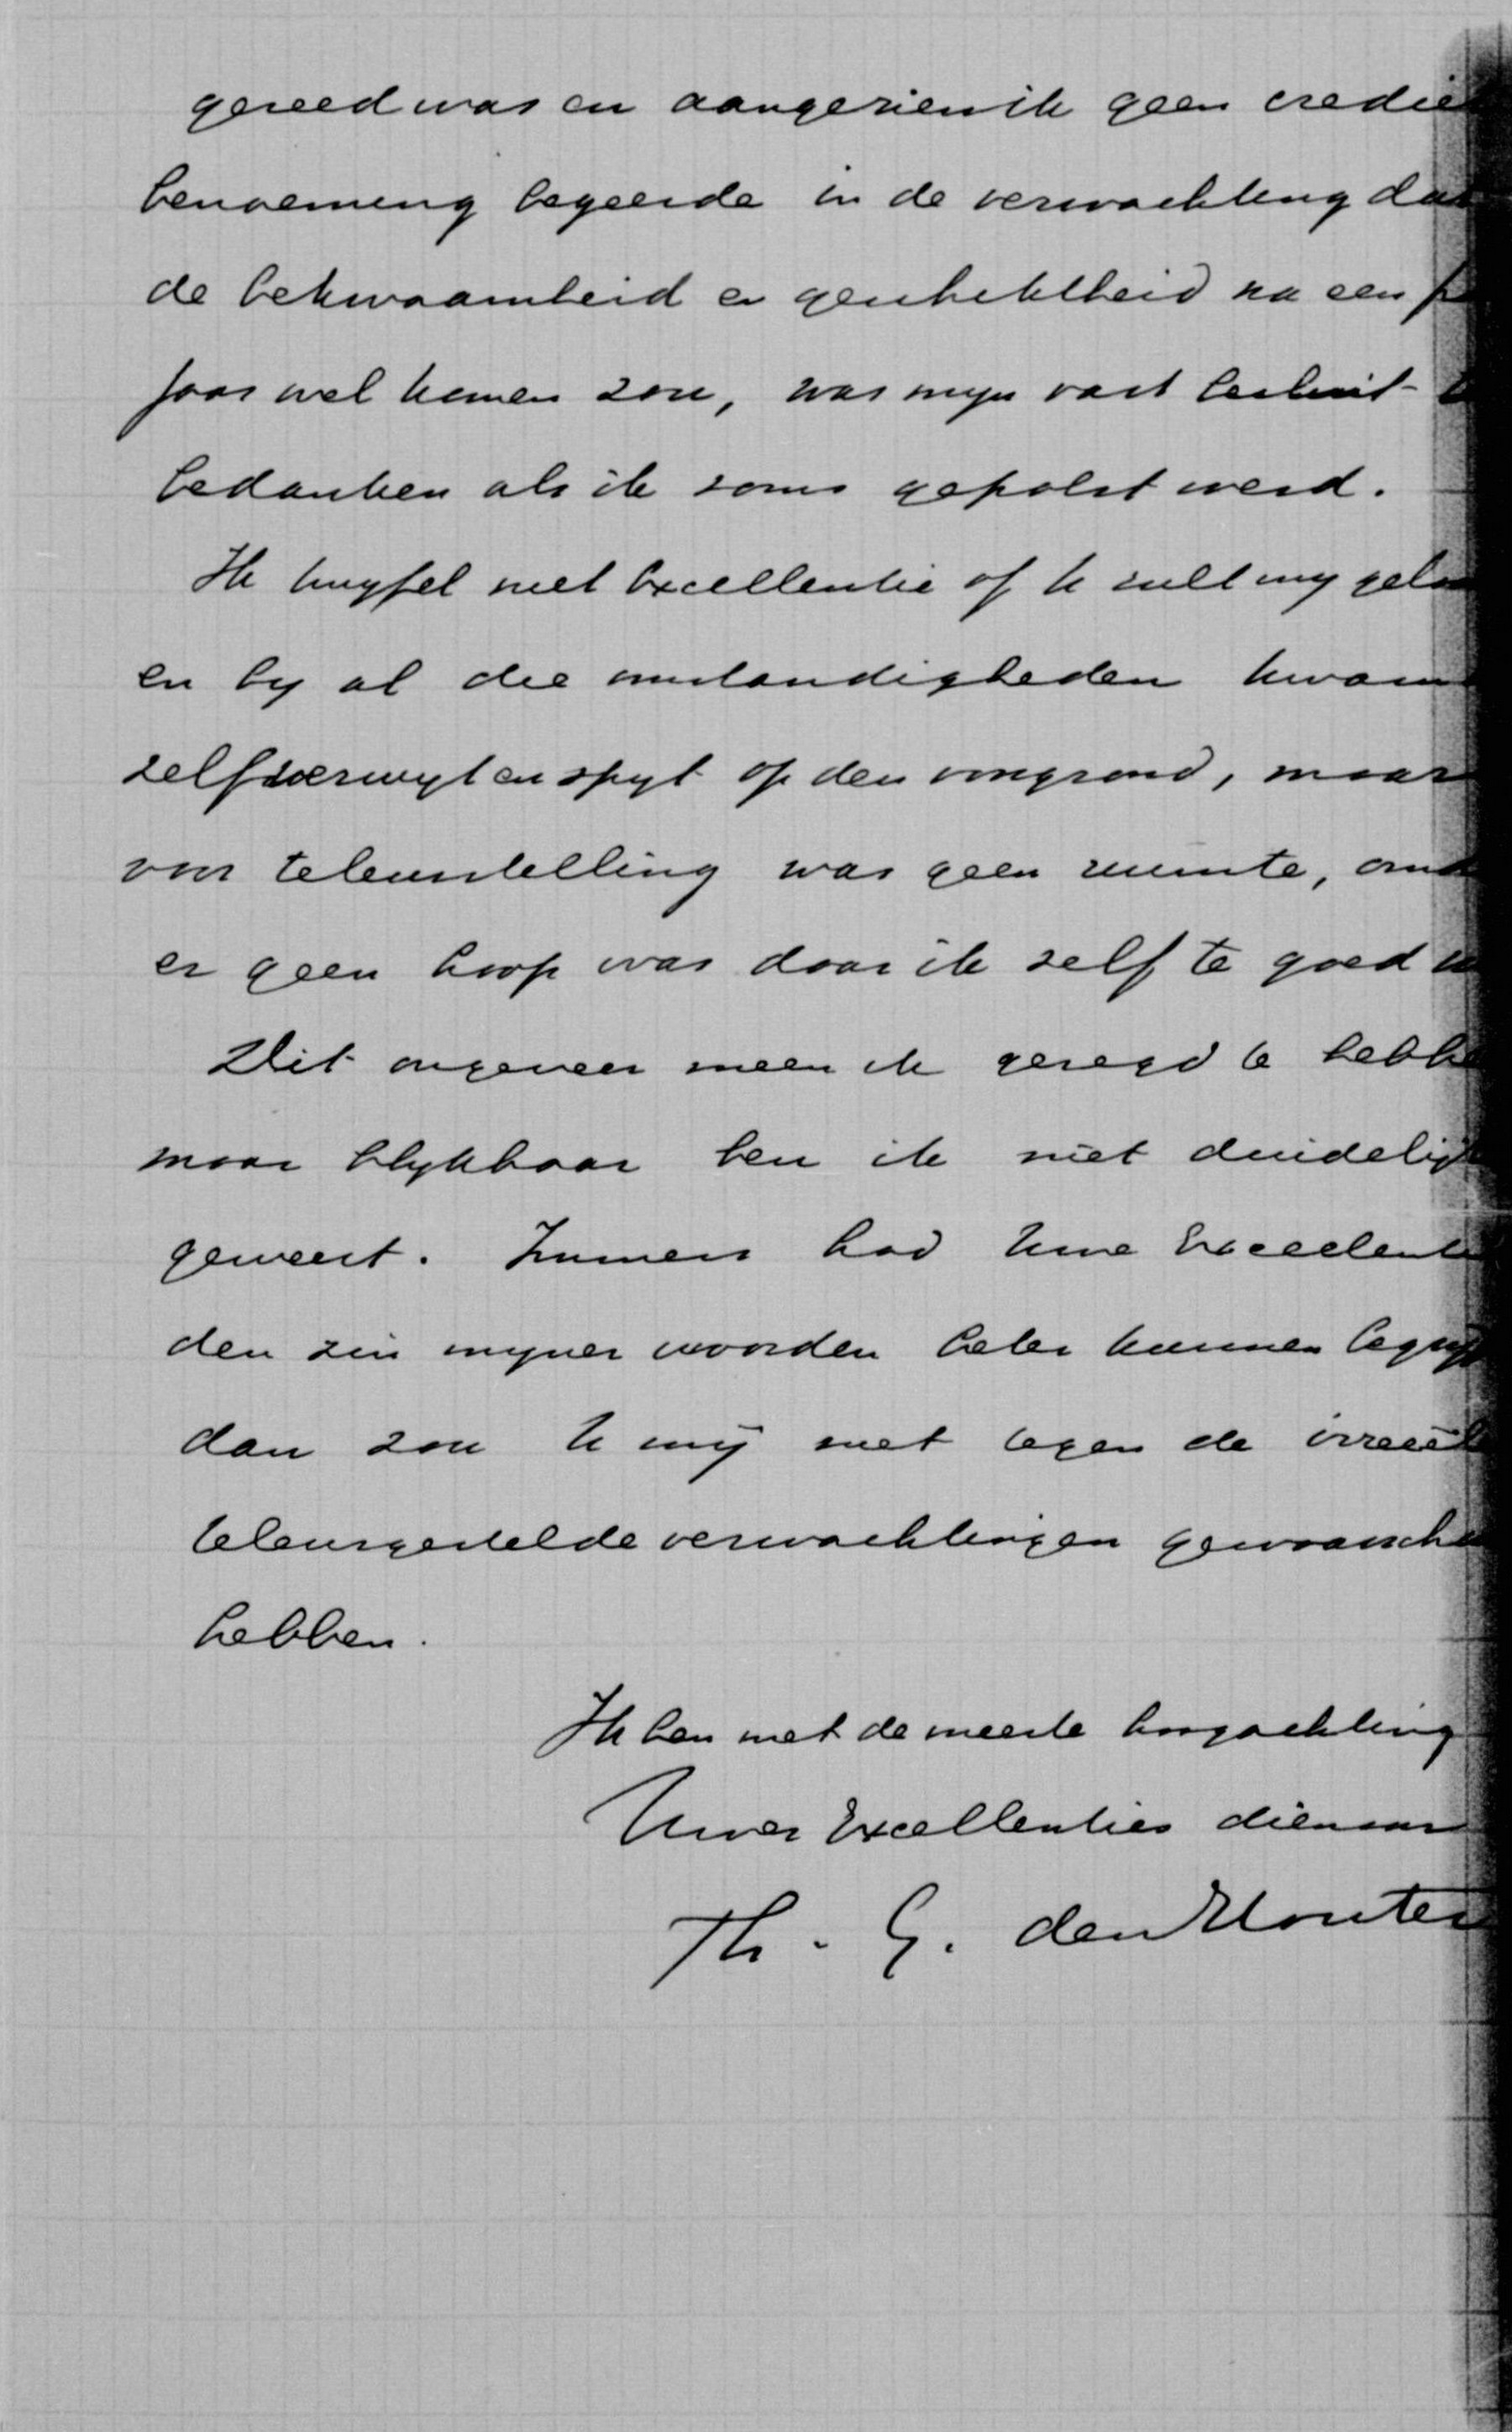 gereed was en aangezien ik geen crediet
benoeming begeerde in de verwachting dat
de bekwaamheid en geschiktheid na een p
jaar wel komen zou, was myn vast besluit t
bedanken als ik soms gepolst werd.
Ik twyfel niet Excellentie of U zult my gelo
en by al die omstandigheden kwam
zelfverwyt en spyt op den voorgrond, maar
voor teleurstelling was geen ruimte, omd
er geen hoop was daar ik zelf te goed w
Dit ongeveer meen ik gezegd te hebbe
maar blykbaar ben ik niet duidelijk
geweest. Immers had Uwe Excellentie
den zin myner woorden beter kunnen begryp
dan zou U mij niet tegen de irreëele
teleurgestelde verwachtingen gewaarschu
hebben.
Ik ben met de meeste hoogachting
Uwer Excellenties dienaar
Th. G. den Houter